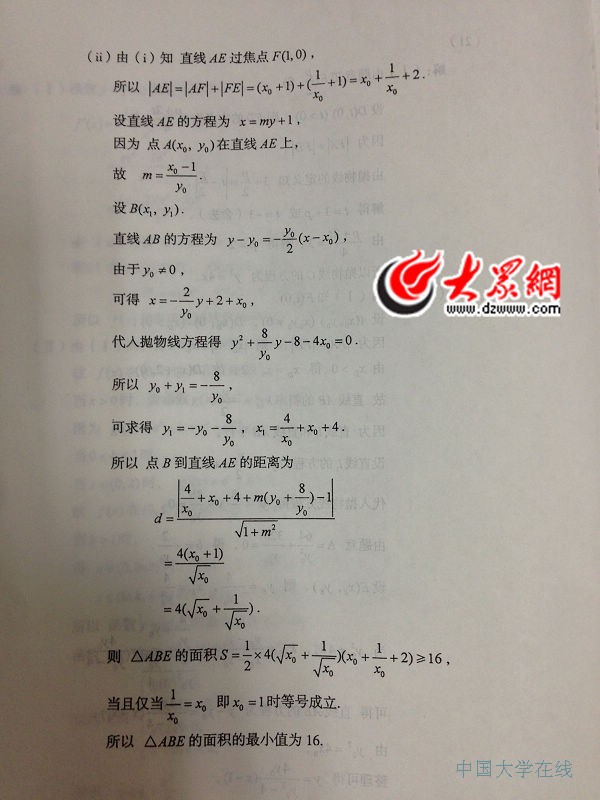 (ii) 由 (i) 知 直线 AE 过焦点 F(1,0),
所以 |AE|=|AF|+|FE|=(x₀+1)+(1/x₀+1)=x₀+1/x₀+2.
设直线 AE 的方程为 x=my+1,
因为 点 A(x₀, y₀) 在直线 AE 上,
故 m=(x₀-1)/y₀.
设 B(x₁, y₁).
直线 AB 的方程为 y-y₀=-y₀/2(x-x₀),
由于 y₀≠0,
可得 x=-2/y₀ y+2+x₀,
代入抛物线方程得 y²+8/y₀ y-8-4x₀=0.
所以 y₀+y₁=-8/y₀,
可求得 y₁=-y₀-8/y₀, x₁=4/x₀+x₀+4.
所以 点 B 到直线 AE 的距离为
d=|4/x₀+x₀+4+m(y₀+8/y₀)-1|/√(1+m²)
=4(x₀+1)/√x₀
=4(√x₀+1/√x₀).
则 △ABE 的面积 S=1/2×4(√x₀+1/√x₀)(x₀+1/x₀+2)≥16,
当且仅当 1/x₀=x₀ 即 x₀=1 时等号成立.
所以 △ABE 的面积的最小值为 16.
大众網
www.dzwww.com
中国大学在线